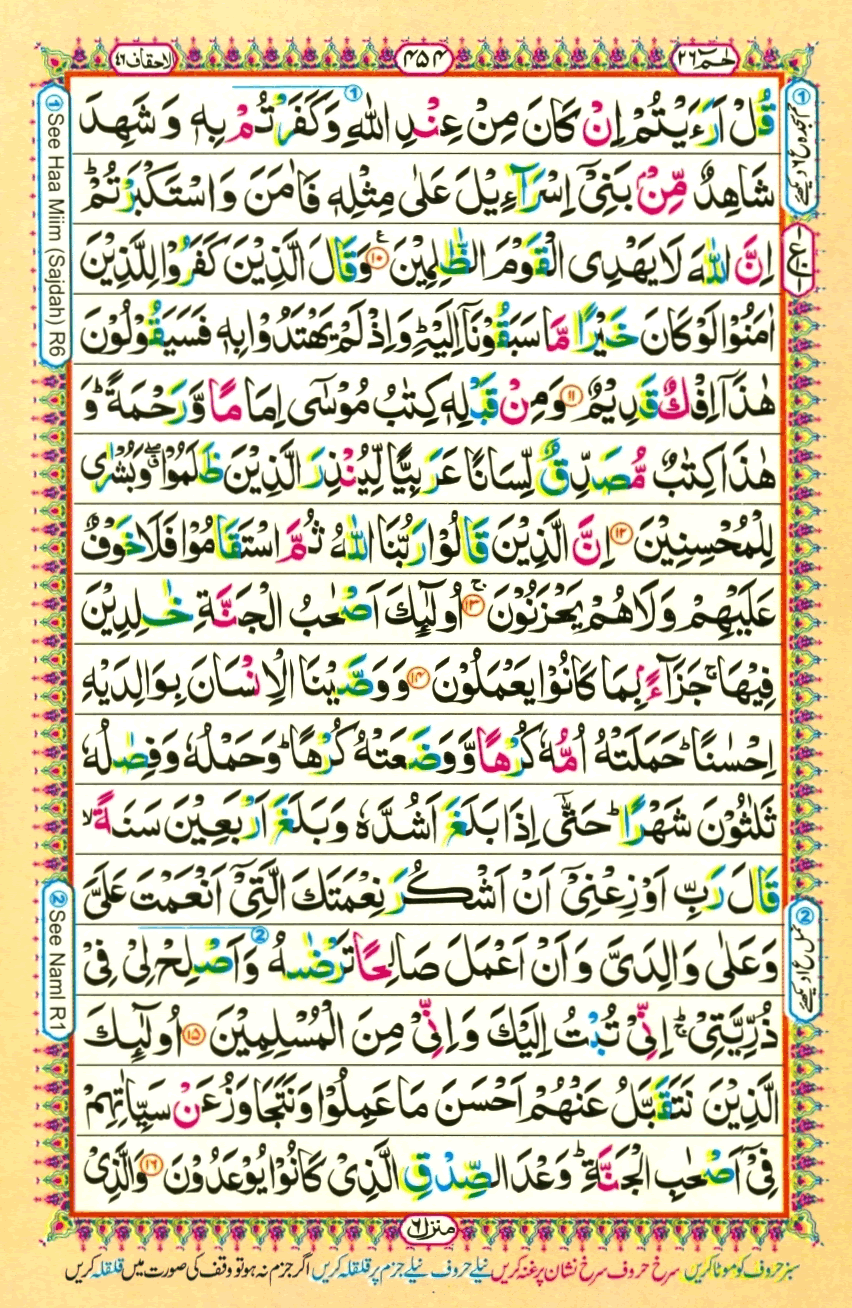 الاحقاف ۴۶
۴۵۴
حٰمٓ ۲۶
قُلْ اَرَءَیْتُمْ اِنْ كَانَ مِنْ عِنْدِ اللّٰهِ وَكَفَرْتُمْ بِهٖ وَ شَهِدَ
شَاهِدٌ مِّنْۢ بَنِیْۤ اِسْرَآءِیْلَ عَلٰی مِثْلِهٖ فَاٰمَنَ وَ اسْتَكْبَرْتُمْ ؕ
اِنَّ اللّٰهَ لَا یَهْدِی الْقَوْمَ الظّٰلِمِیْنَ ۱۰ وَ قَالَ الَّذِیْنَ كَفَرُوْا لِلَّذِیْنَ
اٰمَنُوْا لَوْ كَانَ خَیْرًا مَّا سَبَقُوْنَاۤ اِلَیْهِ ؕ وَ اِذْ لَمْ یَهْتَدُوْا بِهٖ فَسَیَقُوْلُوْنَ
هٰذَاۤ اِفْكٌ قَدِیْمٌ ۱۱ وَ مِنْ قَبْلِهٖ كِتٰبُ مُوْسٰۤی اِمَامًا وَّ رَحْمَةً ؕ وَ
هٰذَا كِتٰبٌ مُّصَدِّقٌ لِّسَانًا عَرَبِیًّا لِّیُنْذِرَ الَّذِیْنَ ظَلَمُوْا ۖۗ وَ بُشْرٰی
لِلْمُحْسِنِیْنَ ۱۲ اِنَّ الَّذِیْنَ قَالُوْا رَبُّنَا اللّٰهُ ثُمَّ اسْتَقَامُوْا فَلَا خَوْفٌ
عَلَیْهِمْ وَ لَا هُمْ یَحْزَنُوْنَ ۱۳ۚ اُولٰٓىِٕكَ اَصْحٰبُ الْجَنَّةِ خٰلِدِیْنَ
فِیْهَا ۚ جَزَآءًۢ بِمَا كَانُوْا یَعْمَلُوْنَ ۱۴ وَ وَصَّیْنَا الْاِنْسَانَ بِوَالِدَیْهِ
اِحْسٰنًا ؕ حَمَلَتْهُ اُمُّهٗ كُرْهًا وَّ وَضَعَتْهُ كُرْهًا ؕ وَ حَمْلُهٗ وَ فِصٰلُهٗ
ثَلٰثُوْنَ شَهْرًا ؕ حَتّٰۤی اِذَا بَلَغَ اَشُدَّهٗ وَ بَلَغَ اَرْبَعِیْنَ سَنَةً ۙ
قَالَ رَبِّ اَوْزِعْنِیْۤ اَنْ اَشْكُرَ نِعْمَتَكَ الَّتِیْۤ اَنْعَمْتَ عَلَیَّ
وَ عَلٰی وَالِدَیَّ وَ اَنْ اَعْمَلَ صَالِحًا تَرْضٰىهُ وَ اَصْلِحْ لِیْ فِیْ
ذُرِّیَّتِیْ ؕۚ اِنِّیْ تُبْتُ اِلَیْكَ وَ اِنِّیْ مِنَ الْمُسْلِمِیْنَ ۱۵ اُولٰٓىِٕكَ
الَّذِیْنَ نَتَقَبَّلُ عَنْهُمْ اَحْسَنَ مَا عَمِلُوْا وَ نَتَجَاوَزُ عَنْ سَیِّاٰتِهِمْ
فِیْۤ اَصْحٰبِ الْجَنَّةِ ؕ وَعْدَ الصِّدْقِ الَّذِیْ كَانُوْا یُوْعَدُوْنَ ۱۶ وَ الَّذِیْ
① See Haa Miim (Sajdah) R6
② See Naml R1
① حٰم سجدہ ع ۶ دیکھئے
② نمل ع ۱ دیکھئے
منزل ۶
سبز حروف کو موٹا کریں سرخ حروف سرخ نشان پر غنہ کریں نیلے حروف نیلے جزم پر قلقلہ کریں اگر جزم نہ ہو تو وقف کی صورت میں قلقلہ کریں